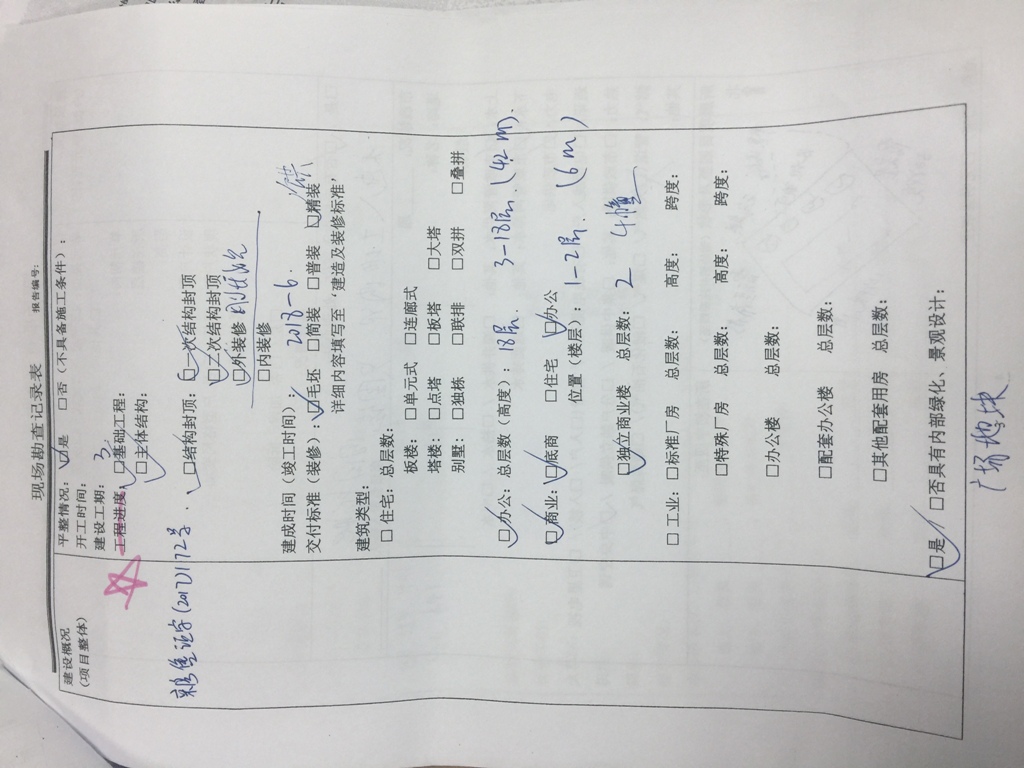 现场勘查记录表
报告编号:
建设概况
(项目整体)
平整情况: ☑是 □否(不具备施工条件):
开工时间:
建设工期: 3
工程进度: ☑基础工程:
☑主体结构:
☑结构封顶: ☑一次结构封顶
(2017)172号.
☑二次结构封顶
☑外装修
□内装修
建成时间(竣工时间): 2018-6.
交付标准(装修): ☑毛坯 □简装 □普装 ☑精装
详细内容填写至'建造及装修标准'
建筑类型:
□住宅: 总层数:
板楼: □单元式 □连廊式
塔楼: □点塔 □板塔 □大塔
别墅: □独栋 □联排 □双拼 □叠拼
☑办公: 总层数(高度): 18层. 3-18层.(42m).
☑商业: ☑底商 □住宅 ☑办公
位置(楼层): 1-2层.(6m)
☑独立商业楼 总层数: 2 4幢
□工业: □标准厂房 总层数: 高度: 跨度:
□特殊厂房 总层数: 高度: 跨度:
□办公楼 总层数:
□配套办公楼 总层数:
□其他配套用房 总层数:
☑是 □否具有内部绿化、景观设计:
广场地块